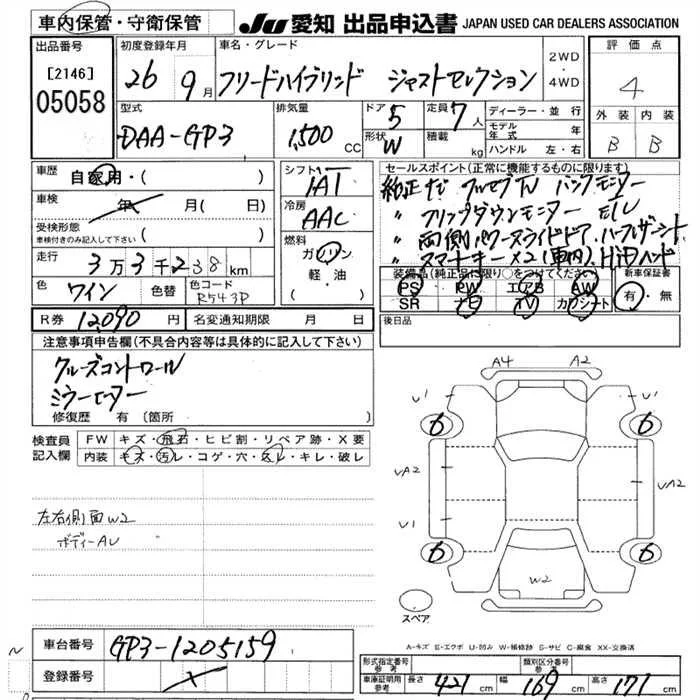 車内保管・守衛保管
JU 愛知 出品申込書 JAPAN USED CAR DEALERS ASSOCIATION
出品番号 初度登録年月 車名・グレード 2WD・4WD 評価点
[2146] 05058
26 9月 フリードハイブリッド ジャストセレクション 4
型式 排気量 ドア 5 定員 7人 ディーラー・並行 外装 内装
DAA-GP3 1,500 CC 形状 W 積載 kg モデル年式 年 B B
ハンドル 左・右
車歴 自家用・( )
シフト IAT
セールスポイント(正常に機能するものに限ります)
車検 年 月( 日)
冷房 AAC
純正ナビ フルセグTV バックモニター
〃 フリップダウンモニター ETC
受検形態 車検付きのみ記入して下さい ( )
燃料 ガソリン 軽・油 ( )
〃 両側パワースライドドア、ハーフレザーシート
〃 スマートキー×2(車内)、HiDヘッド
走行 3万3千238km
装備品(純正品に限り○をつけてください) 新車保証書
PS PW エアB AW 有・無
SR ナビ TV カワシート
色 ワイン 色替 色コード R543P
R券 12090円 名変通知期限 月 日
後日品
注意事項申告欄(不具合内容等は具体的に記入して下さい)
クルーズコントロール
ミラーヒーター
修復歴 有 (箇所
検査員記入欄 FW キズ・飛石・ヒビ割・リペア跡・X要
内装 キズ・汚レ・コゲ・穴・ムレ・キレ・破レ
左右側面W2
ボディーAU
A4 A2
U' U'
6 6
UA2 UA2
U1
6 6
W2
スペア
A-キズ E-エクボ U-凹み W-補修跡 S-サビ C-腐食 XX-交換済
車台番号 GP3-1205159
登録番号
形式指定番号 参考 類別区分番号 参考
車庫証明用 参考 長さ 421cm 幅 169cm 高さ 171cm